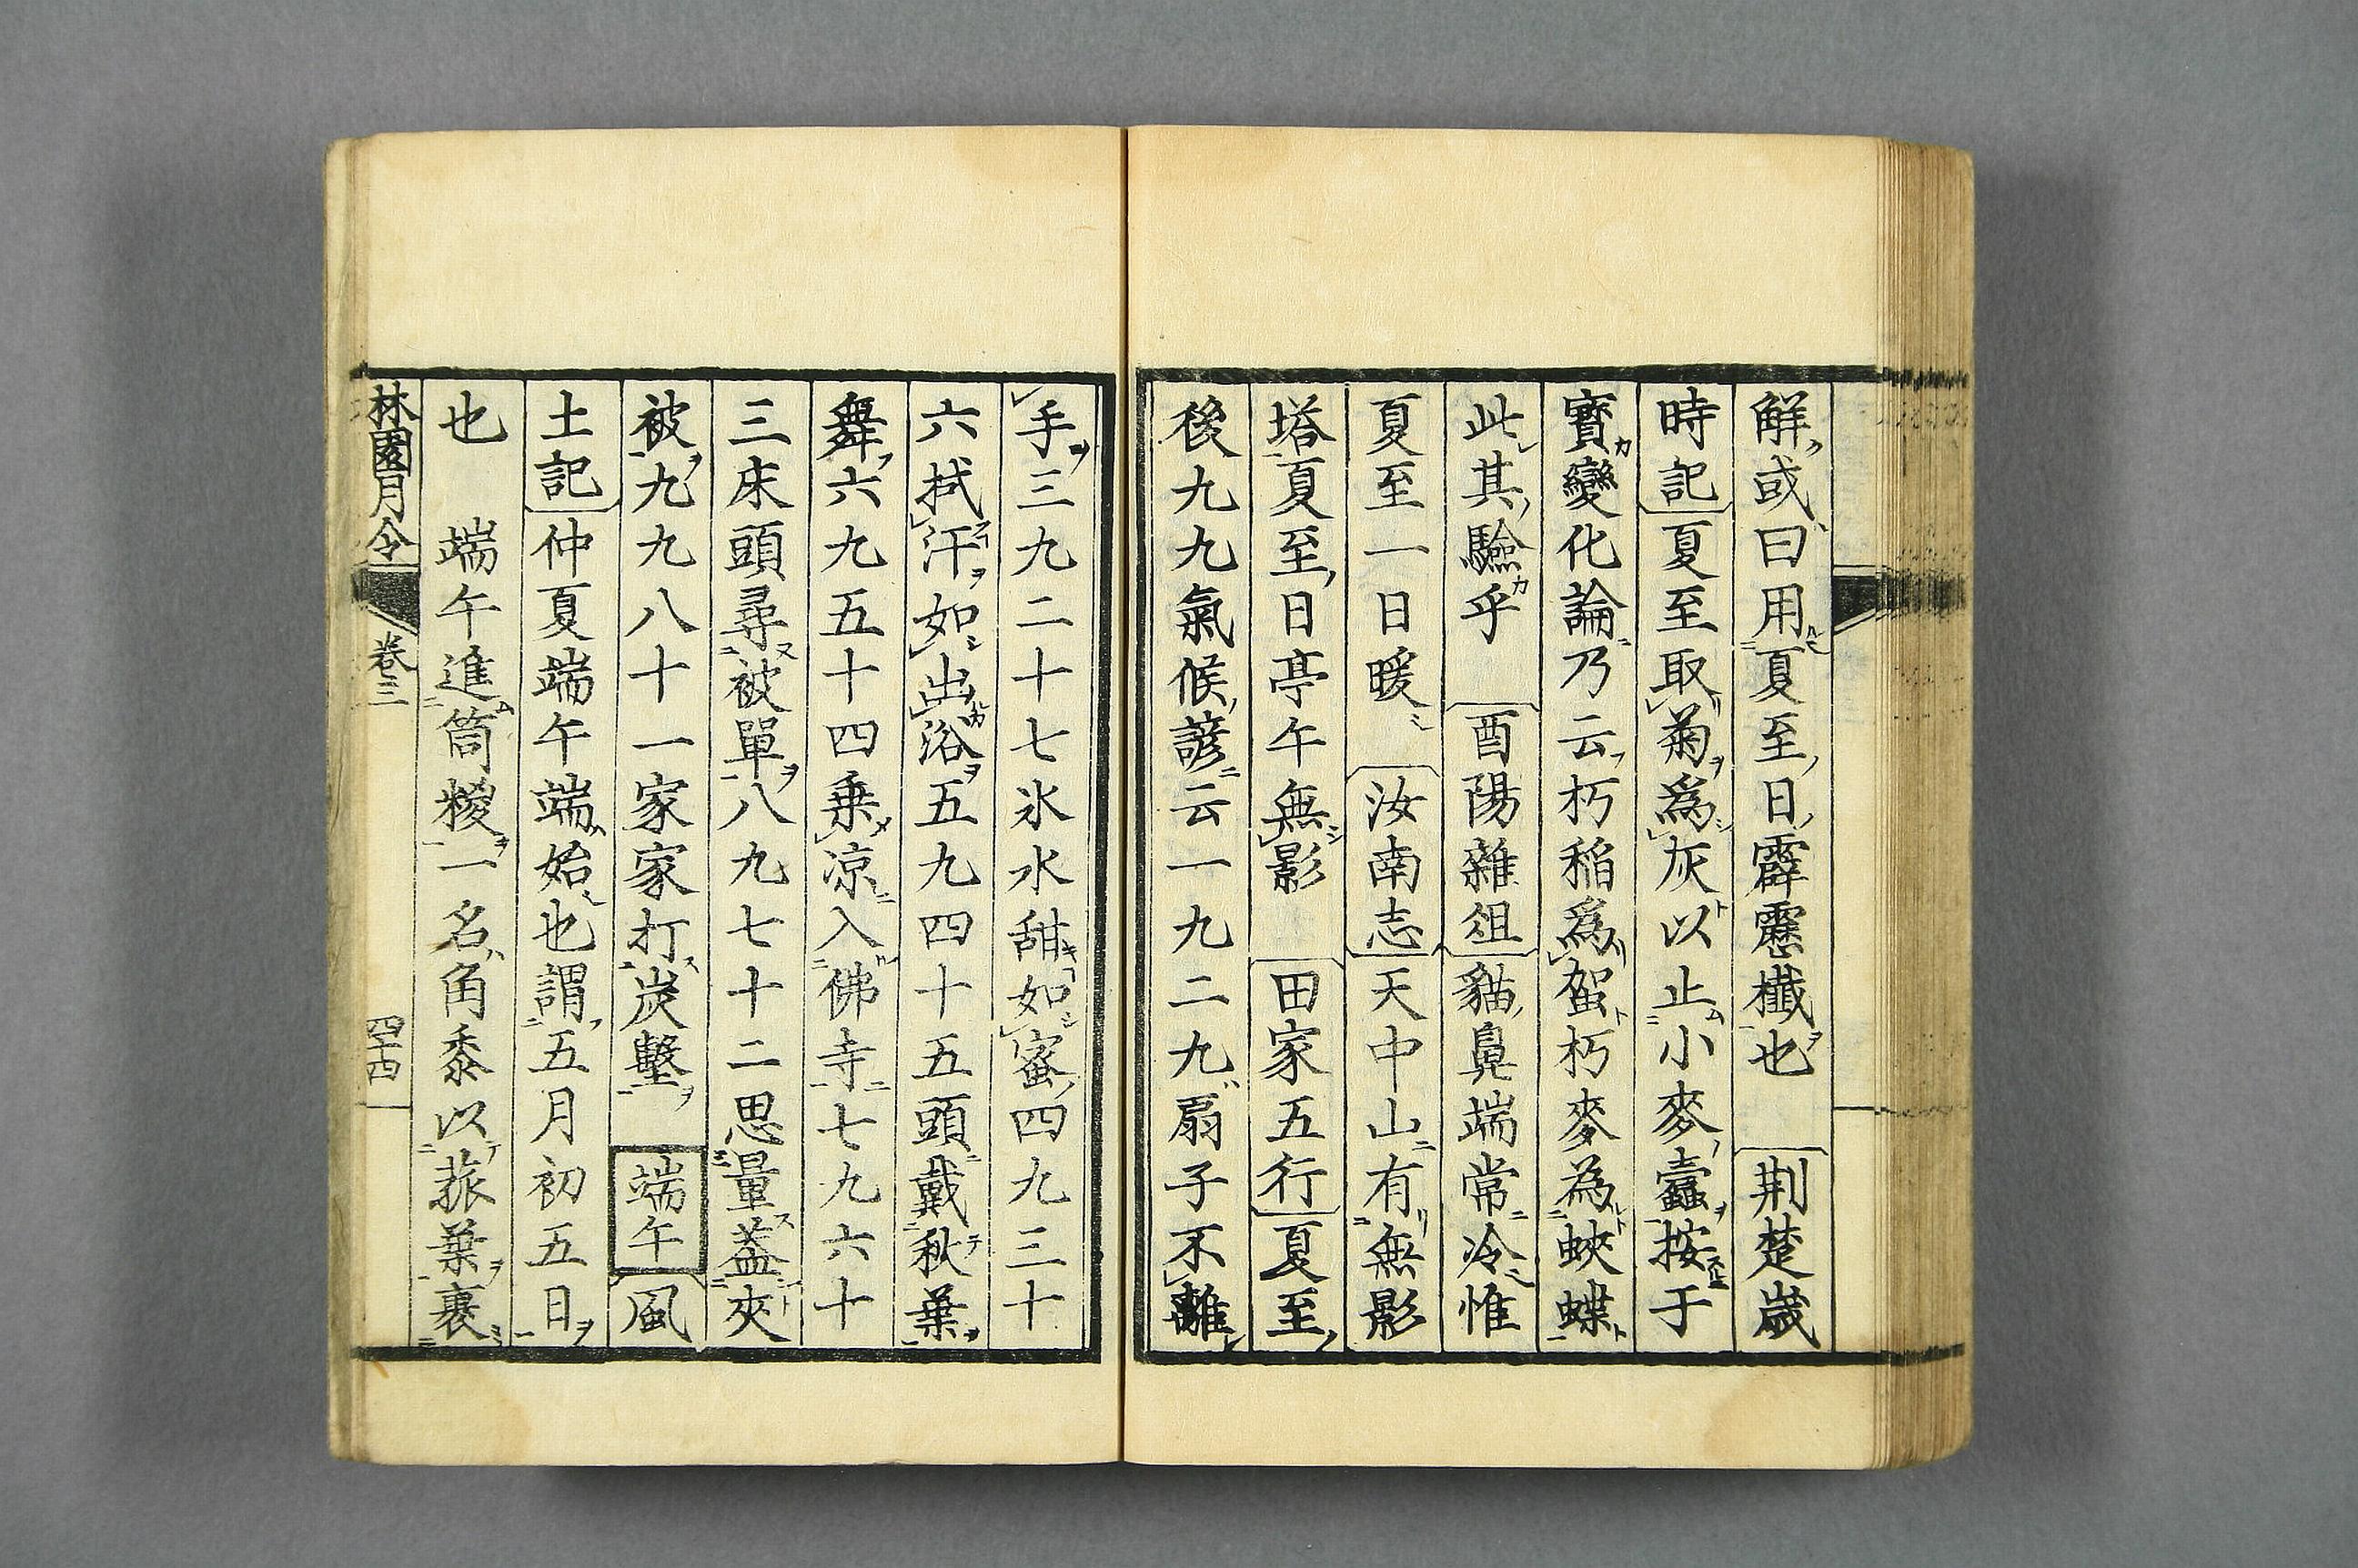 解或曰用夏至日霹靂櫼也　荆楚歲
時記　夏至取菊爲灰以止小麥蠹按于
寶變化論乃云朽稻爲䖙朽麥為蛺蝶
此其驗乎　酉陽雜俎　貓鼻端常冷惟
夏至一日暖　汝南志　天中山有無影
塔夏至日亭午無影　田家五行　夏至
後九九氣候諺云一九二九扇子不離
手三九二十七氷水甜如蜜四九三十
六拭汗如出浴五九四十五頭戴秋葉
舞六九五十四乗凉入佛寺七九六十
三床頭尋被單八九七十二思量葢夾
被九九八十一家家打炭墼　端午　風
土記　仲夏端午端始也謂五月初五日
也　端午進筒糉一名角黍以菰葉裹
林園月令　卷三　四十四